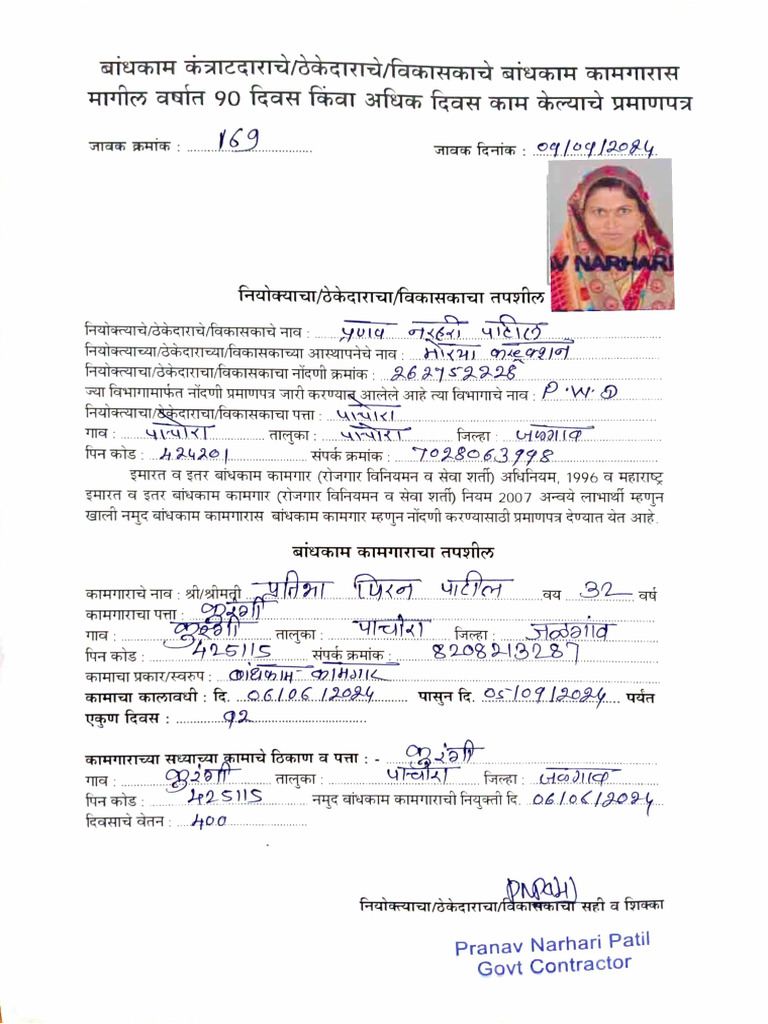 बांधकाम कंत्राटदाराचे/ठेकेदाराचे/विकासकाचे बांधकाम कामगारास
मागील वर्षात 90 दिवस किंवा अधिक दिवस काम केल्याचे प्रमाणपत्र
जावक क्रमांक : 169 जावक दिनांक : 09/09/2024
V NARHARI
नियोक्याचा/ठेकेदाराचा/विकासकाचा तपशील
नियोक्त्याचे/ठेकेदाराचे/विकासकाचे नाव : प्रणव नरहरी पाटील
नियोक्त्याच्या/ठेकेदाराच्या/विकासकाच्या आस्थापनेचे नाव : मोरया कन्स्ट्रक्शन
नियोक्त्याचा/ठेकेदाराचा/विकासकाचा नोंदणी क्रमांक : 262752228
ज्या विभागामार्फत नोंदणी प्रमाणपत्र जारी करण्यात आलेले आहे त्या विभागाचे नाव : P.W.D
नियोक्त्याचा/ठेकेदाराचा/विकासकाचा पत्ता : पाचोरा
गाव : पाचोरा तालुका : पाचोरा जिल्हा : जळगाव
पिन कोड : 424201 संपर्क क्रमांक : 7028063998
इमारत व इतर बांधकाम कामगार (रोजगार विनियमन व सेवा शर्ती) अधिनियम, 1996 व महाराष्ट्र
इमारत व इतर बांधकाम कामगार (रोजगार विनियमन व सेवा शर्ती) नियम 2007 अन्वये लाभार्थी म्हणुन
खाली नमुद बांधकाम कामगारास बांधकाम कामगार म्हणुन नोंदणी करण्यासाठी प्रमाणपत्र देण्यात येत आहे.
बांधकाम कामगाराचा तपशील
कामगाराचे नाव : श्री/श्रीमती प्रतिभा पिरन पाटील वय 32 वर्ष
कामगाराचा पत्ता : कुरंगी
गाव : कुरंगी तालुका : पाचोरा जिल्हा : जळगांव
पिन कोड : 425115 संपर्क क्रमांक : 8208213287
कामाचा प्रकार/स्वरुप : बांधकाम कामगार
कामाचा कालावधी : दि. 06/06/2024 पासुन दि. 05/09/2024 पर्यंत
एकुण दिवस : 92
कामगाराच्या सध्याच्या कामाचे ठिकाण व पत्ता : - कुरंगी
गाव : कुरंगी तालुका : पाचोरा जिल्हा : जळगाव
पिन कोड : 425115 नमुद बांधकाम कामगाराची नियुक्ती दि. 06/06/2024
दिवसाचे वेतन : 400
नियोक्त्याचा/ठेकेदाराचा/विकासकाचा सही व शिक्का
Pranav Narhari Patil
Govt Contractor